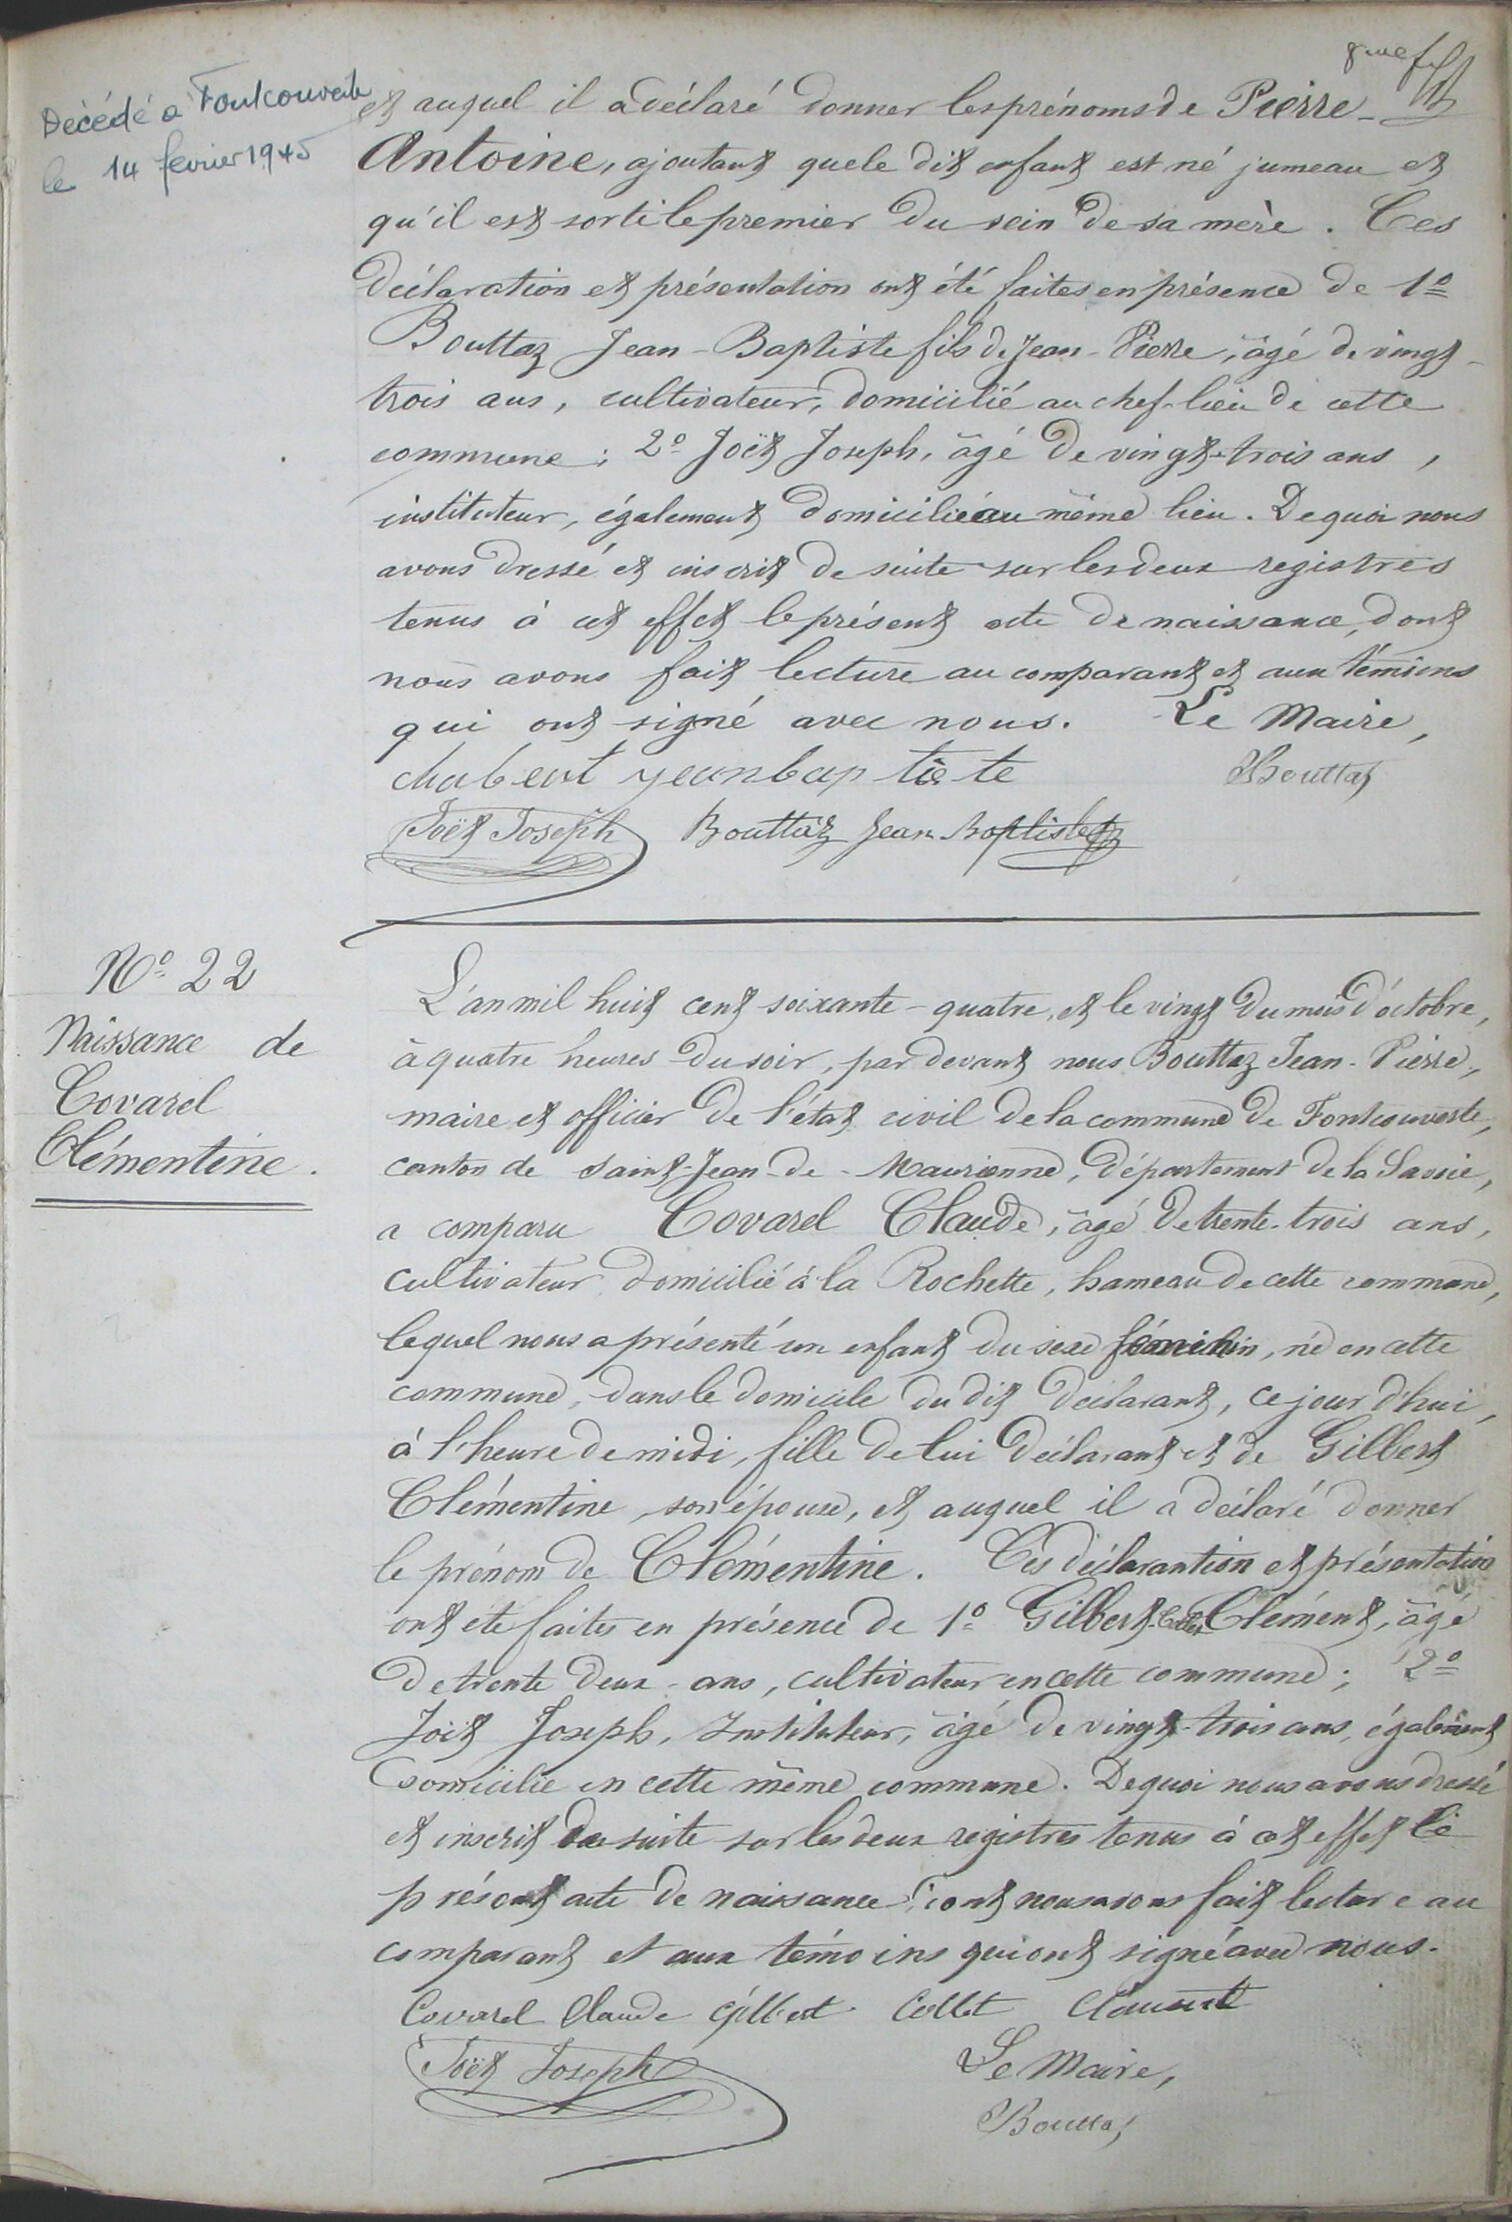 Décédé à Fontcouverte
le 14 février 1945
et auquel il a déclaré donner les prénoms de Pierre-
Antoine, ajoutant que le dit enfant est né jumeau et
qu'il est sorti le premier du sein de sa mère. Ces
déclaration et présentation ont été faites en présence de 1º
Bouttaz Jean-Baptiste fils de Jean-Pierre, âgé de vingt-
trois ans, cultivateur, domicilié au chef-lieu de cette
commune; 2º Joët Joseph, âgé de vingt-trois ans,
instituteur, également domicilié au même lieu. De quoi nous
avons dressé et inscrit de suite sur les deux registres
tenus à cet effet le présent acte de naissance, dont
nous avons fait lecture au comparant et aux témoins
qui ont signé avec nous. Le Maire,
chabert jeanbaptiste Bouttaz
Joët Joseph Bouttaz Jean Baptiste
Nº 22
Naissance de
Covarel
Clémentine.
L'an mil huit cent soixante-quatre, et le vingt du mois d'octobre,
à quatre heures du soir, par devant nous Bouttaz Jean-Pierre,
maire et officier de l'état civil de la commune de Fontcouverte,
canton de Saint-Jean-de-Maurienne, département de la Savoie,
a comparu Covarel Claude, âgé de trente-trois ans,
cultivateur domicilié à la Rochette, hameau de cette commune,
lequel nous a présenté un enfant du sexe féminin, né en cette
commune, dans le domicile du dit déclarant, ce jour d'hui,
à l'heure de midi, fille de lui déclarant et de Gilbert
Clémentine, son épouse, et auquel il a déclaré donner
le prénom de Clémentine. Ces déclarantion et présentation
ont été faites en présence de 1º Gilbert-Collet Clément, âgé
de trente deux-ans, cultivateur en cette commune; 2º
Joët Joseph, Instituteur, âgé de vingt-trois ans, également
domicilié en cette même commune. De quoi nous avons dressé
et inscrit de suite sur les deux registres tenus à cet effet le
présent acte de naissance dont nous avons fait lecture au
comparant et aux témoins qui ont signé avec nous.
Covarel Claude Gilbert Collet Clément
Joët Joseph Le Maire,
Bouttaz